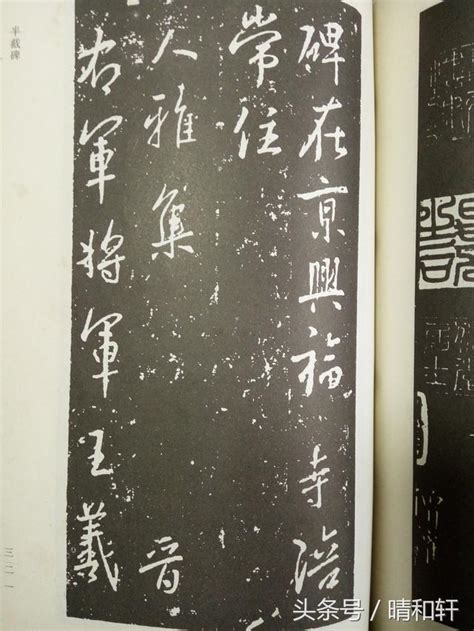 碑在京興福寺陪
常住
人雅集 晋
右軍將軍王羲
半截碑
三二一
头条号 / 晴和轩